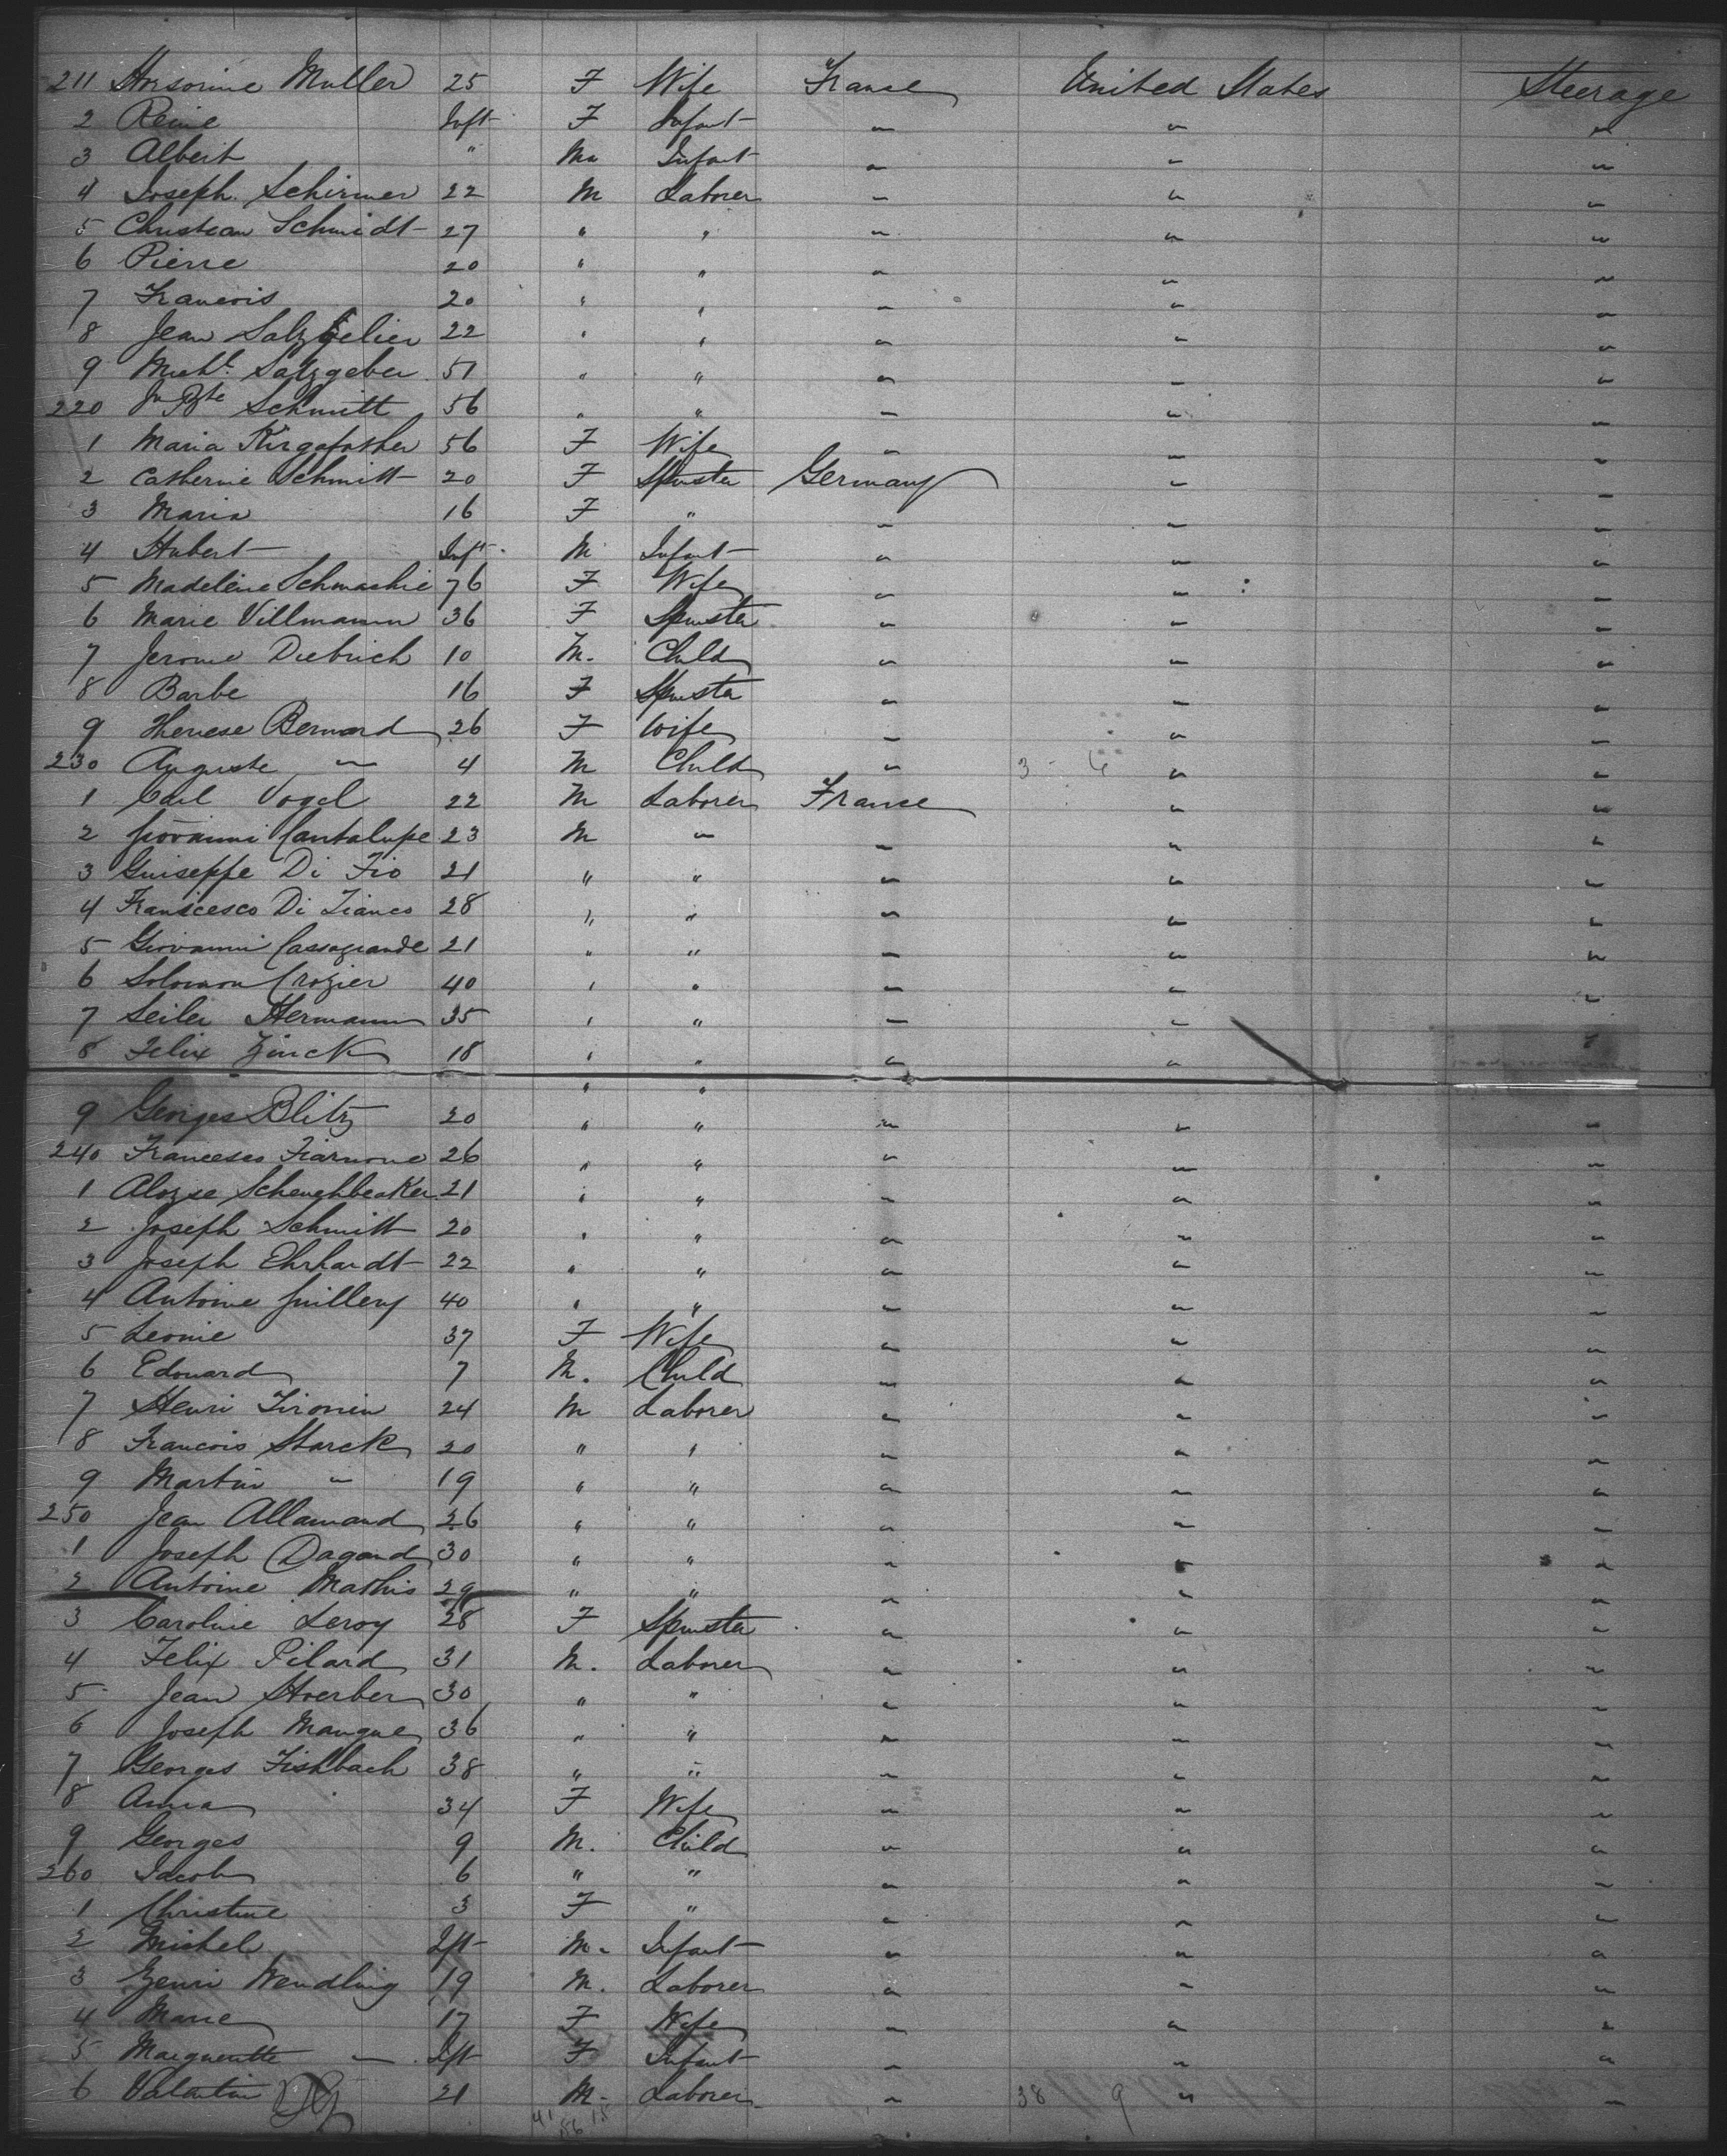 211 Muller 25 F Wife France United States Steerage
2 Reine Inft F Infant " " "
3 Albert " M Infant " " "
4 Joseph Schirmer 22 M Laborer " " "
5 Christian Schmidt 27 " " " " "
6 Pierre 20 " " " " "
7 Francois 20 " " " " "
8 Jean 22 " " " " "
9 Michl. Salzgeber 51 " " " " "
220 Jn Bte Schmitt 56 " " " " "
1 Maria 56 F Wife " " "
2 Catherine Schmitt 20 F Spinster Germany " "
3 Maria 16 F " " " "
4 Hubert Inft M Infant " " "
5 Madeleine 76 F Wife " " "
6 Marie Villmann 36 F Spinster " " "
7 Jerome Diebrich 10 M. Child " " "
8 Barbe 16 F Spinster " " "
9 Therese Bernard 26 F Wife " " "
230 Auguste " 4 M Child " 3 - 6 " "
1 Carl Vogel 22 M Laborer France " "
2 Giovanni Cantalupe 23 M " " " "
3 Guiseppe Di Fio 21 " " " " "
4 Francesco Di 28 " " " " "
5 Giovanni Cassagrande 21 " " " " "
6 Solomon Crozier 40 " " " " "
7 Seiler Hermann 35 " " " " "
8 Felix Zinck 18 " " " " "
9 Georges Blitz 20 " " " " "
240 Francesco 26 " " " " "
1 21 " " " " "
2 Joseph Schmitt 20 " " " " "
3 Joseph Ehrhardt 22 " " " " "
4 Antoine Guillery 40 " " " " "
5 Leonie 37 F Wife " " "
6 Edouard 7 M. Child " " "
7 Henri 24 M Laborer " " "
8 Francois Starck 20 " " " " "
9 Martin " 19 " " " " "
250 Jean Allamand 26 " " " " "
1 Joseph Dagand 30 " " " " "
2 Antoine Mathis 29 " " " " "
3 Caroline Leroy 28 F Spinster " " "
4 Felix Pilard 31 M. Laborer " " "
5 Jean Stoerber 30 " " " " "
6 Joseph Mangue 36 " " " " "
7 Georges Fishbach 38 " " " " "
8 Anna 34 F Wife " " "
9 Georges 9 M. Child " " "
260 Jacob 6 " " " " "
1 Christine 3 F " " " "
2 Michel Ift M. Infant " " "
3 Henri Wendling 19 M. Laborer " " "
4 Marie 17 F Wife " " "
5 Margueritte " Ift F Infant " " "
6 Valentin 21 M. Laborer " 38 9 " "
41 56 15